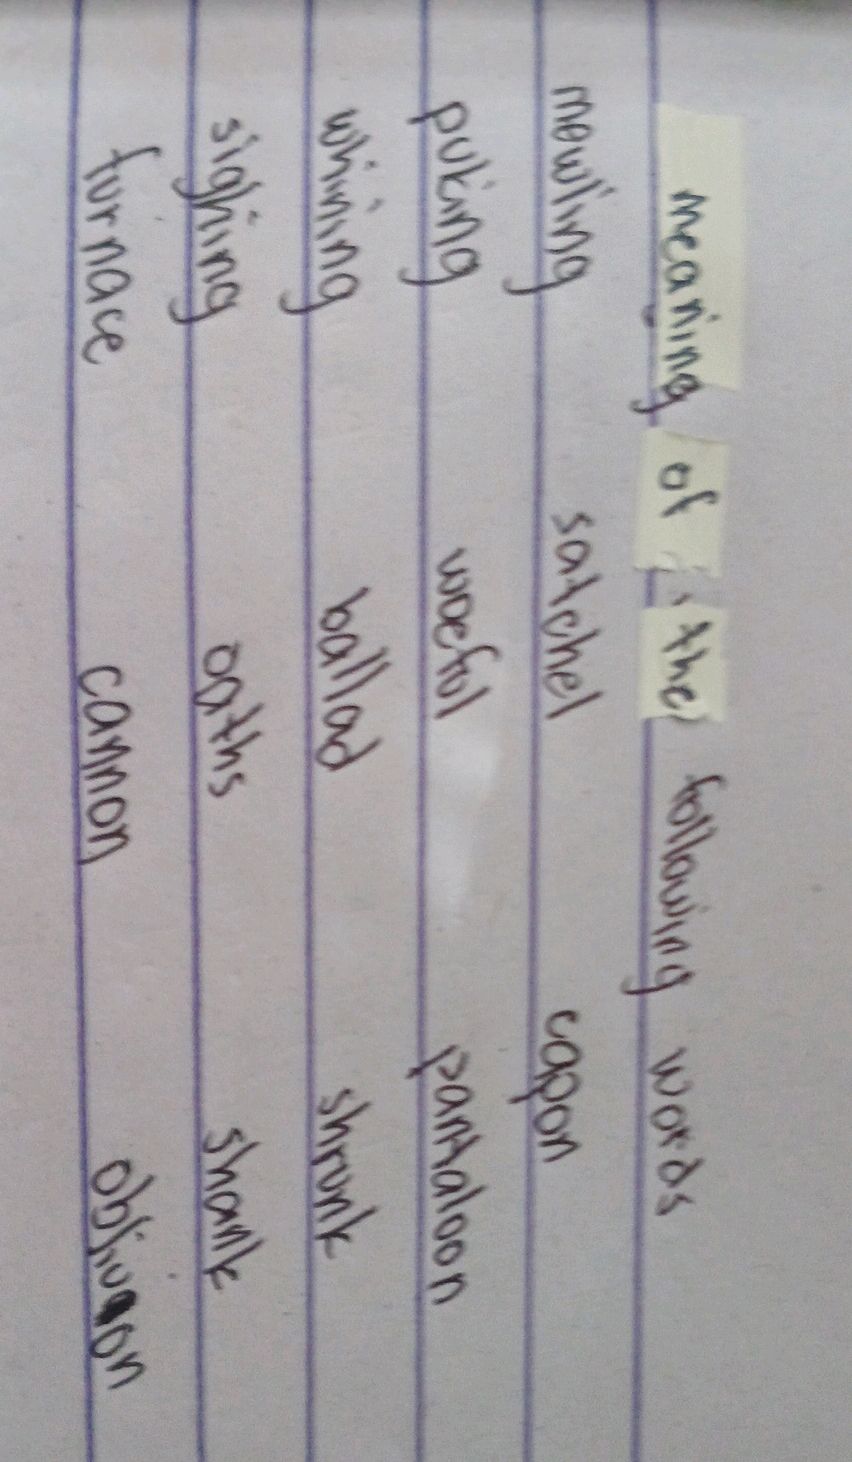 meaning of the following words
mewling satchel capon
puking woeful pantaloon
whining ballad shrunk
sighing oaths shank
furnace cannon oblivion